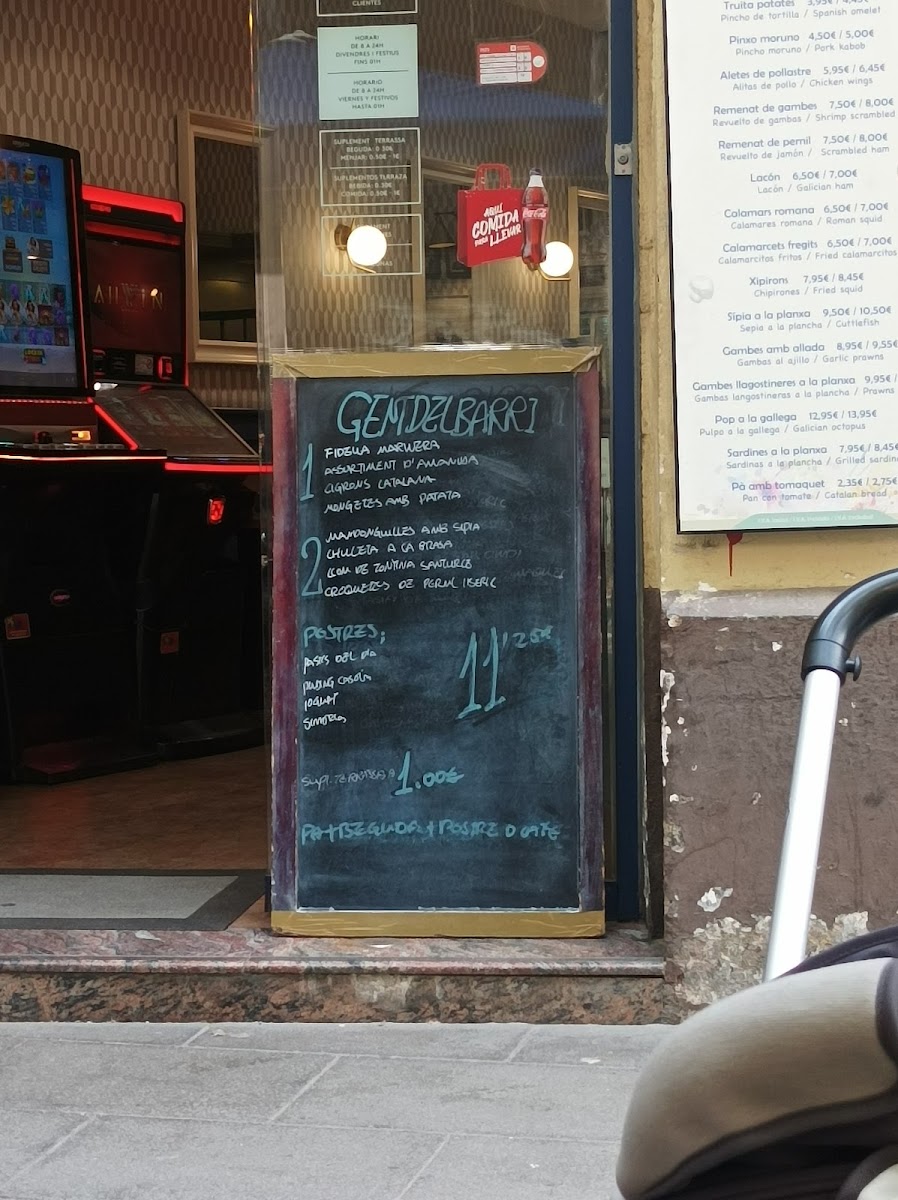 CLIENTES
HORARI
DE 8 A 24H
DIVENDRES I FESTIUS
FINS 01H
HORARIO
DE 8 A 24H
VIERNES Y FESTIVOS
HASTA 01H
SUPLEMENT TERRASSA
BEGUDA: 0.30€
MENJAR: 0.50€ - 1€
SUPLEMENTOS TERRAZA
BEBIDA: 0.30€
COMIDA: 0.50€ - 1€
AQUÍ,
COMIDA
PARA LLEVAR
Coca-Cola
ALLWIN
GENT DEL BARRI
1
FIDEUA MARINERA
ASSORTIMENT D'AMANIDA
CIGRONS CATALANA
MONGETES AMB PATATA
2
MANDONGUILLES AMB SIPIA
CHULETA A LA BRASA
LLOM DE TONYINA SANTURCE
CROQUETES DE PERNIL IBERIC
POSTRES;
PASTIS DEL DIA
PUDING CASOLÀ
IOGURT
11'25€
SUPL. TERRASSA 1.00€
PA+BEGUDA+POSTRE O CAFE
Truita patates 3,95€ / 4,45€
Pincho de tortilla / Spanish omelet
Pinxo moruno 4,50€ / 5,00€
Pincho moruno / Pork kabob
Aletes de pollastre 5,95€ / 6,45€
Alitas de pollo / Chicken wings
Remenat de gambes 7,50€ / 8,00€
Revuelto de gambas / Shrimp scrambled
Remenat de pernil 7,50€ / 8,00€
Revuelto de jamón / Scrambled ham
Lacón 6,50€ / 7,00€
Lacón / Galician ham
Calamars romana 6,50€ / 7,00€
Calamares romana / Roman squid
Calamarcets fregits 6,50€ / 7,00€
Calamarcitos fritos / Fried calamarcitos
Xipirons 7,95€ / 8,45€
Chipirones / Fried squid
Sípia a la planxa 9,50€ / 10,50€
Sepia a la plancha / Cuttlefish
Gambes amb allada 8,95€ / 9,55€
Gambas al ajillo / Garlic prawns
Gambes llagostineres a la planxa 9,95€ /
Gambas langostineras a la plancha / Prawns
Pop a la gallega 12,95€ / 13,95€
Pulpo a la gallega / Galician octopus
Sardines a la planxa 7,95€ / 8,45€
Sardinas a la plancha / Grilled sardin
Pà amb tomaquet 2,35€ / 2,75€
Pan con tomate / Catalan bread